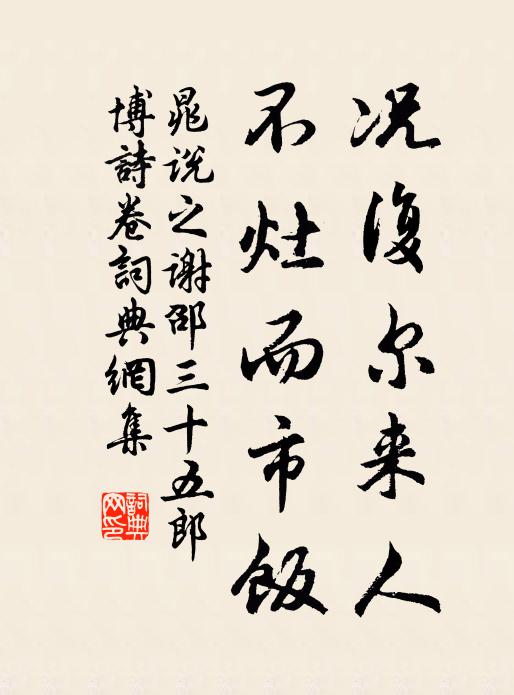 况復尔来人
不灶而市饭
晁说之谢邵三十五郎
博詩卷詞典網集
詞典
网印